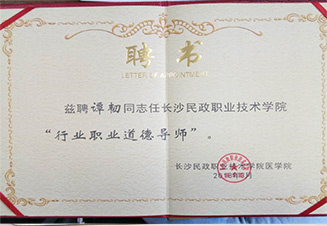 聘书
LETTER OF APPOINTMENT
兹聘谭韧同志任长沙民政职业技术学院
“行业职业道德导师”。
长沙民政职业技术学院医学院